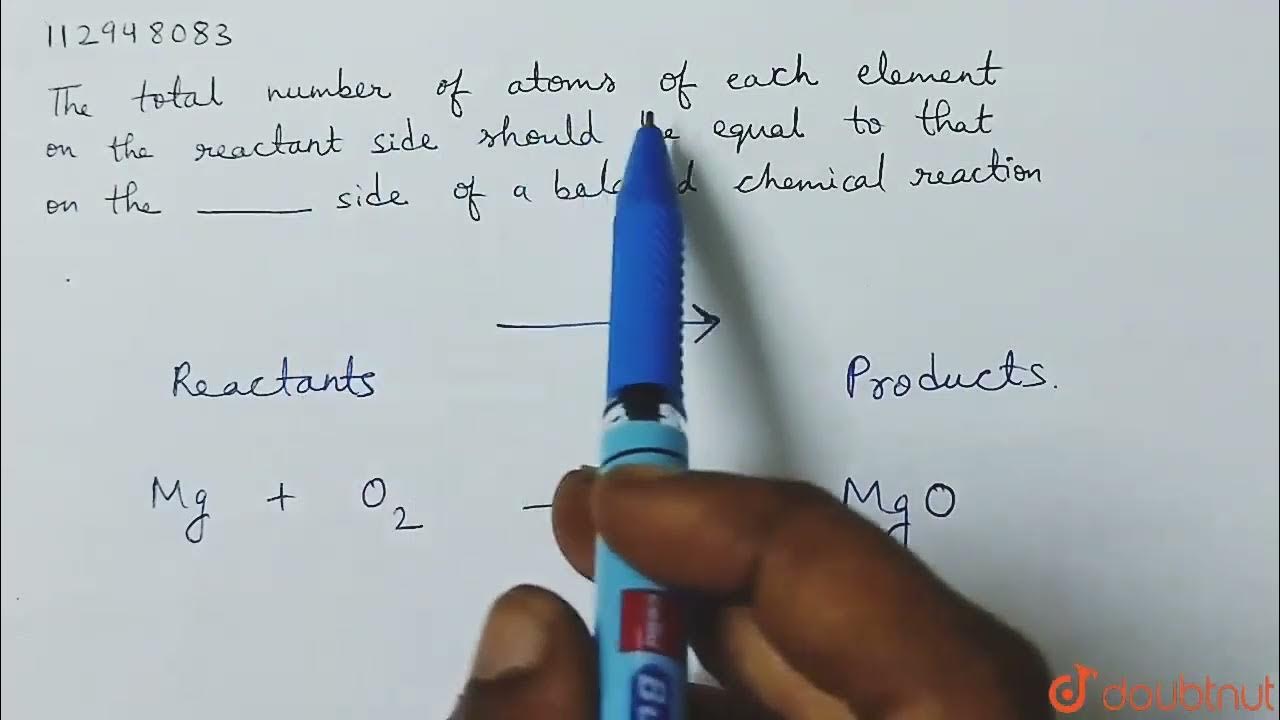 112948083
The total number of atoms of each element
on the reactant side should equal to that
on the ______ side of a chemical reaction
Reactants → Products.
Mg + O2 MgO
doubtnut